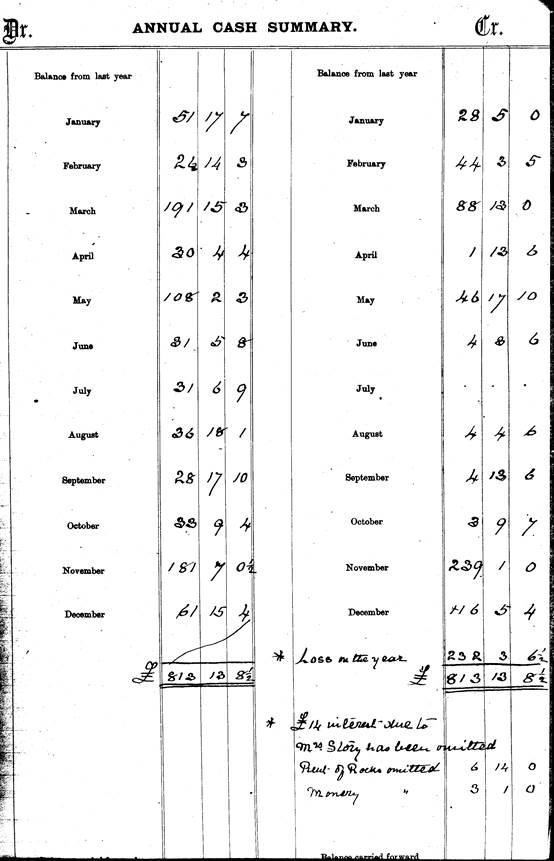 Dr. ANNUAL CASH SUMMARY. Cr.
Balance from last year Balance from last year
January 51 17 7 January 28 5 0
February 26 14 3 February 44 3 5
March 191 15 3 March 88 13 0
April 30 4 4 April 1 13 6
May 108 2 3 May 46 17 10
June 31 5 8 June 4 3 6
July 31 6 9 July . . .
August 36 18 1 August 4 4 6
September 28 17 10 September 4 13 6
October 33 9 4 October 3 9 7
November 181 7 0½ November 239 1 0
December 61 15 4 December 116 5 4
* Loss on the year 232 3 6½
£ 813 13 8½ £ 813 13 8½
* £14 interest due to
Mrs Story has been omitted
Rent of Rocks omitted 6 14 0
" 3 1 0
Balance carried forward